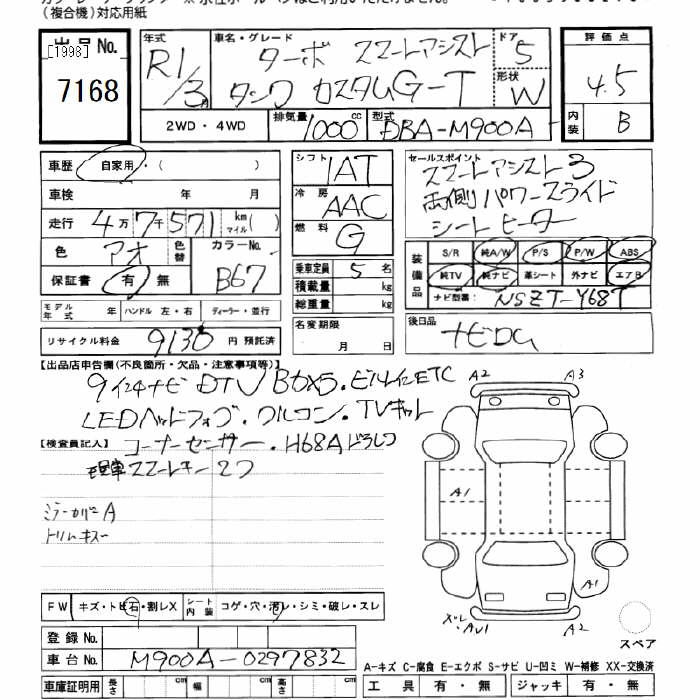 (複合機)対応用紙
出品No. [1998] 7168
年式 R1/3月
車名・グレード ターボ スマートアシスト
タンク カスタムG-T
ドア 5
形状 W
評価点 4.5
内装 B
2WD・4WD 排気量 1000cc 型式 DBA-M900A
車歴 自家用・( )
車検 年 月
走行 4万7千571 km マイル( )
色 アオ 色替 カラーNo. B67
保証書 有・無
シフト 1AT
冷房 AAC
燃料 G
乗車定員 5名
積載量 kg
総重量 kg
セールスポイント
スマートアシスト3
両側パワースライド
シートヒーター
装備品 S/R 純A/W P/S P/W ABS
純TV 純ナビ 革シート 外ナビ エアB
ナビ型番: NSZT-Y68T
モデル年式 年 ハンドル 左・右 ディーラー・並行
リサイクル料金 9130円 預託済
名変期限 月 日
後日品 ナビDG
【出品店申告欄(不良箇所・欠品・注意事項等)】
9インチナビ DTV Bカメラ・ビルトインETC
LEDヘッドフォグ・クルコン・TVキット
【検査員記入】 コーナーセンサー・H68Aドラレコ
スマートキー2ツ
ミラーカバーA
トリムキズ
A2 A3
A1
A1
A2
スペア
FW キズ・トビ石・割レX シート内装 コゲ・穴・汚レ・シミ・破レ・スレ
登録No.
車台No. M900A-0297832
A-キズ C-腐食 E-エクボ S-サビ U-凹ミ W-補修 XX-交換済
車庫証明用 長さ cm 幅 cm 高さ cm 工具 有・無 ジャッキ 有・無